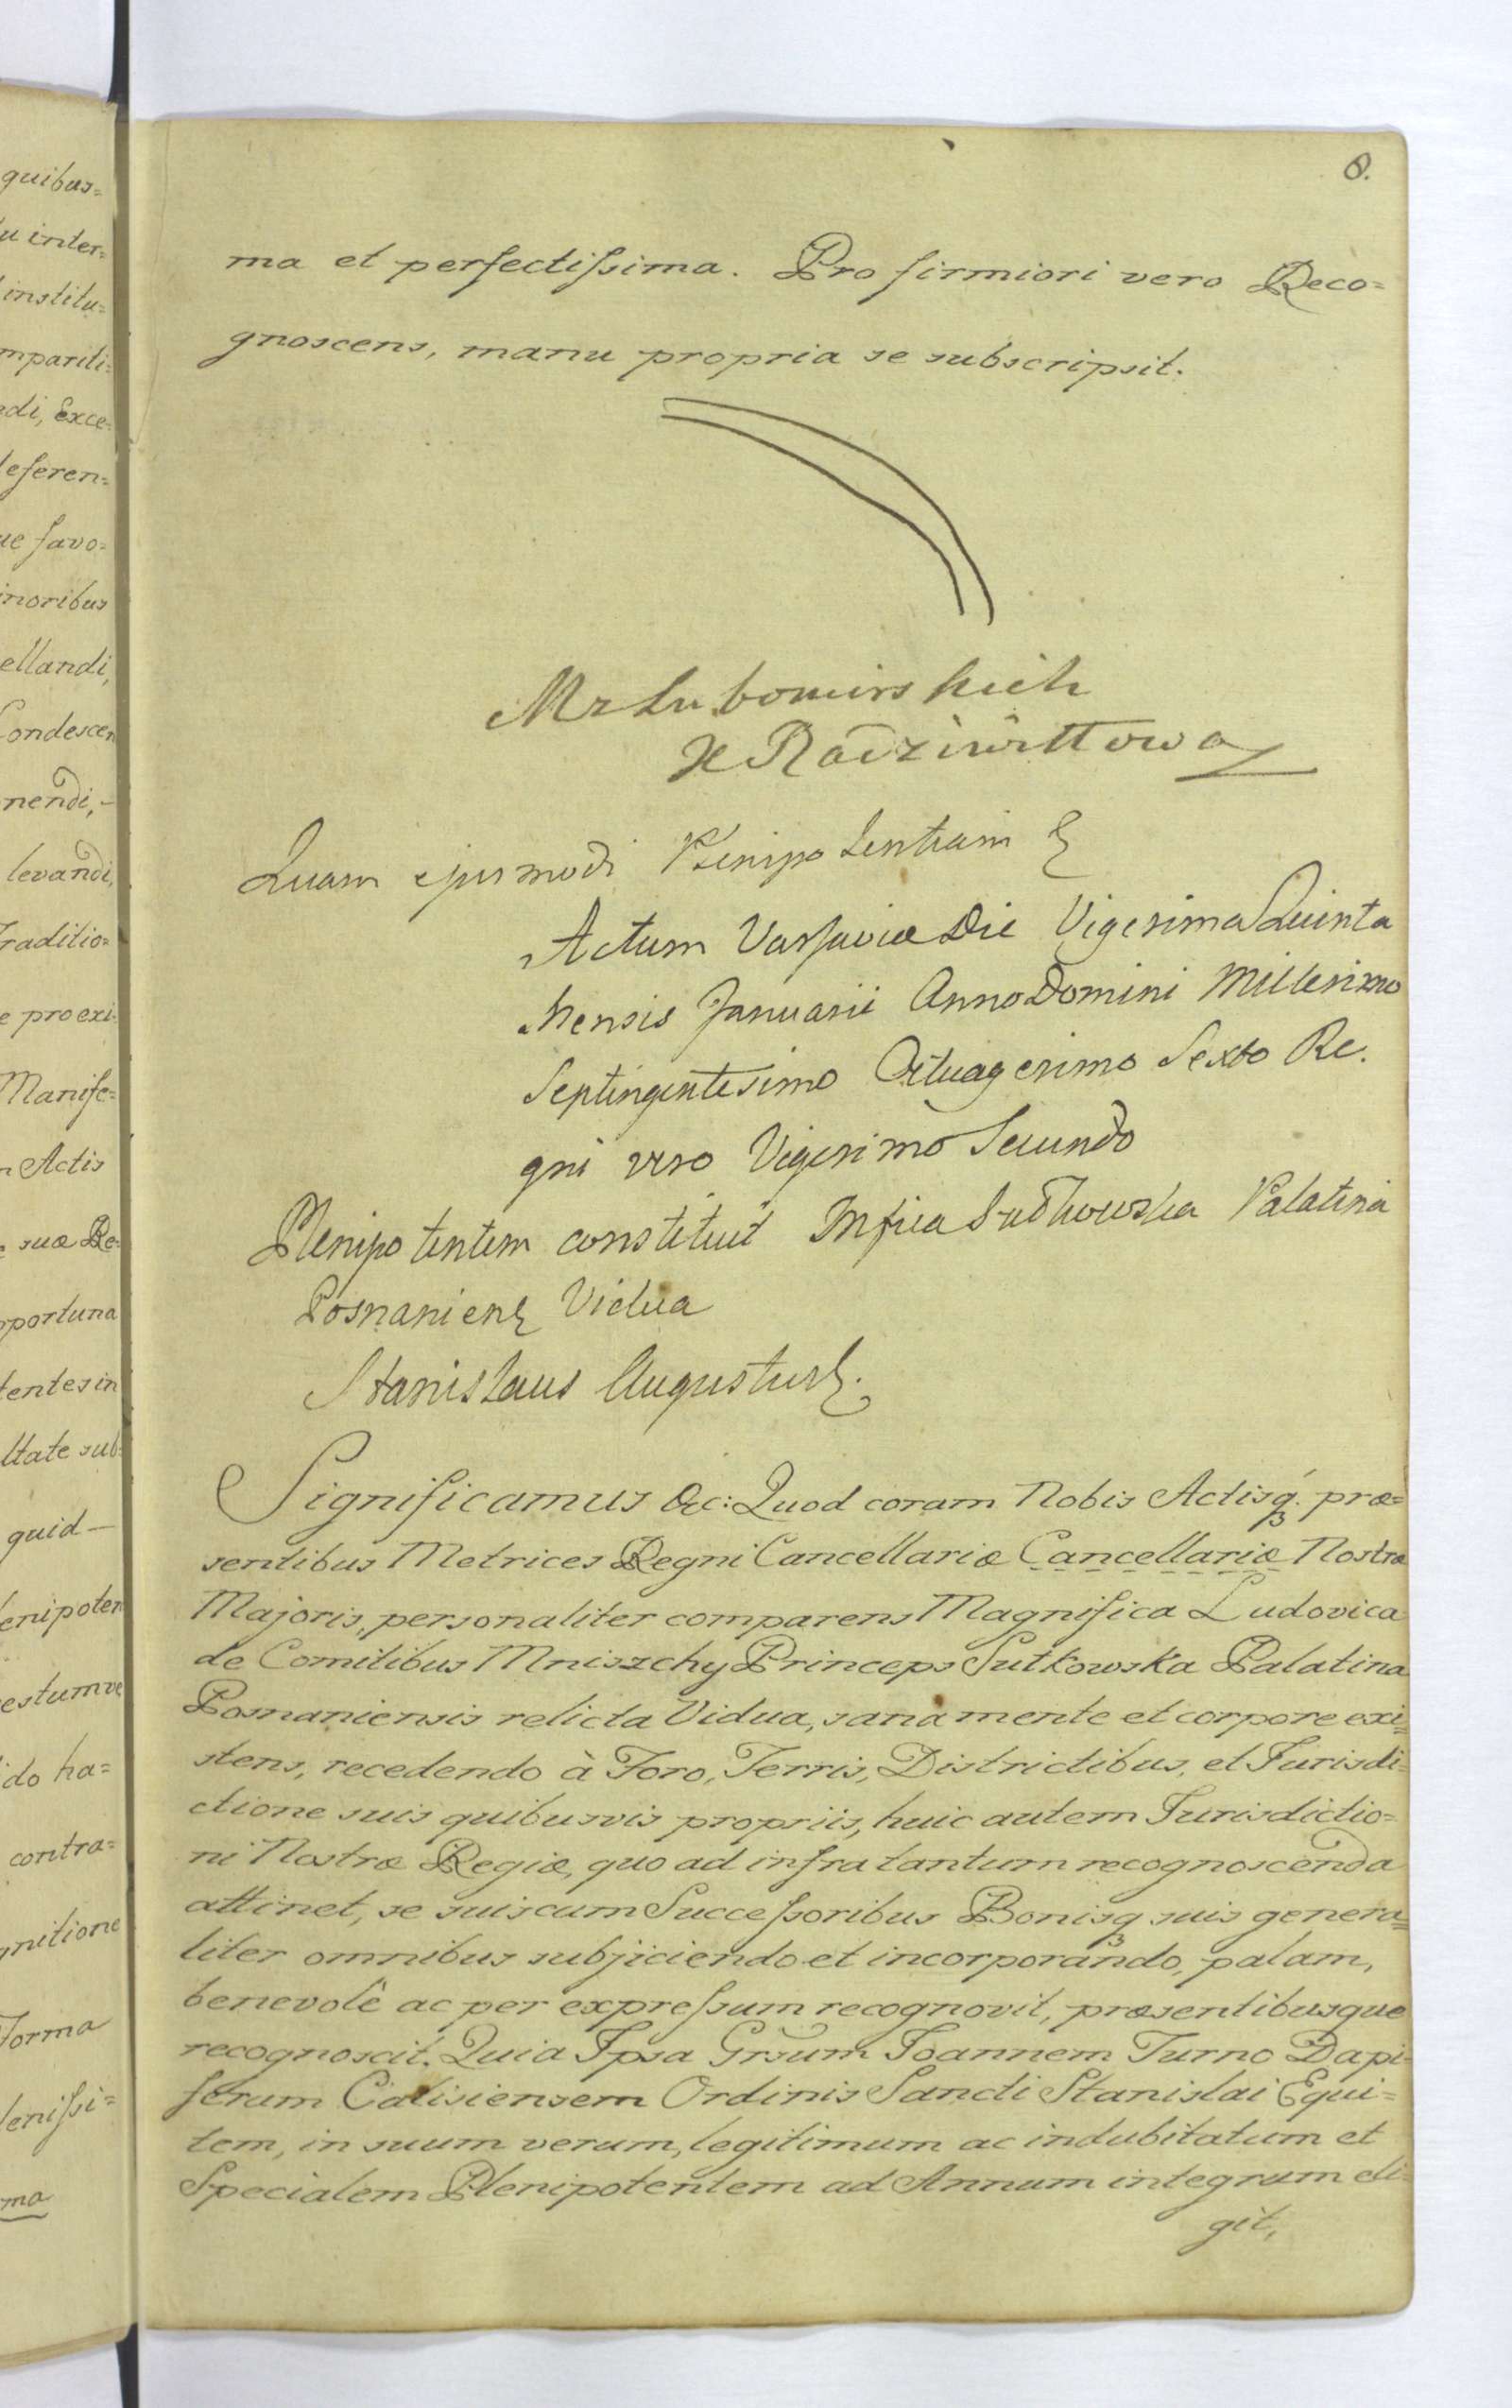 quibus=
u inter=
institu=
mparti=
di, Exce=
eferen=
ue favo=
inoribus
ellandi,
Condescen
nendi,-
levandi,
Traditio=
e pro exi=
Manife=
n Actis
e suæ Re=
pportuna
tentes in
ltate sub=
quid—
lenipoten
estum ve
ido ha=
contra=
gnitione
Forma
lenissi=
ma
8.
ma et perfectissima. Pro firmiori vero Reco=
gnoscens, manu propria se subscripsit.
Mr Lubomirskich
X Radziwiłłowa
Quam ejusmodi Plenipotentiam &
Actum Varsaviæ Die Vigesima Quinta
Mensis Januarii Anno Domini Millesimo
Septingentesimo Octuagesimo Sexto Re.
gni vero Vigesimo Secundo
Plenipotentem constituit Mfica Sułkowska Palatina
Posnanien& Vidua
Stanislaus Augustus &.
Significamus &c: Quod coram Nobis Actisq. præ=
sentibus Metrices Regni Cancellariæ Cancellariæ Nostræ
Majoris, personaliter comparens Magnifica Ludovica
de Comitibus Mniszchy Princeps Sułkowska Palatina
Posnaniensis relicta Vidua, sana mente et corpore exi=
stens, recedendo à Foro, Terris, Districtibus, et Jurisdi=
ctione suis quibusvis propriis, huic autem Jurisdictio=
ni Nostræ Regiæ, quo ad infra tantum recognoscenda
attinet, se suis cum Successoribus Bonisq suis genera=
liter omnibus subjiciendo et incorporando, palam,
benevolê ac per expressum recognovit, præsentibusque
recognoscit. Quia Ipsa Grsum Joannem Turno Dapi=
ferum Calisiensem Ordinis Sancti Stanislai Equi=
tem, in suum verum, legitimum ac indubitatum et
Specialem Plenipotentem ad Annum integrum eli=
git,